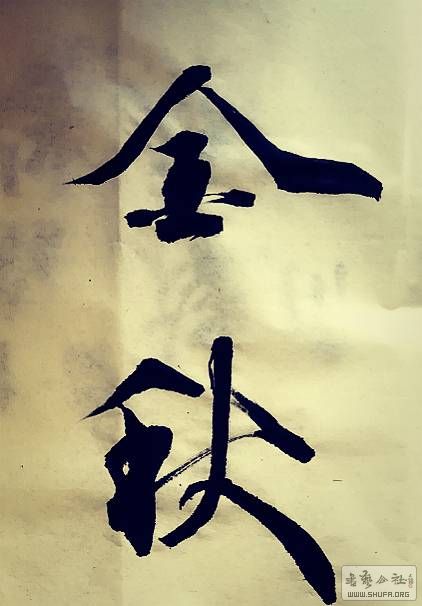 金
秋
书艺公社
WWW.SHUFA.ORG